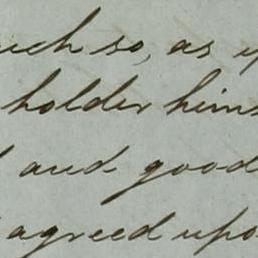 uch so, as
holder hims
and good
agreed upo